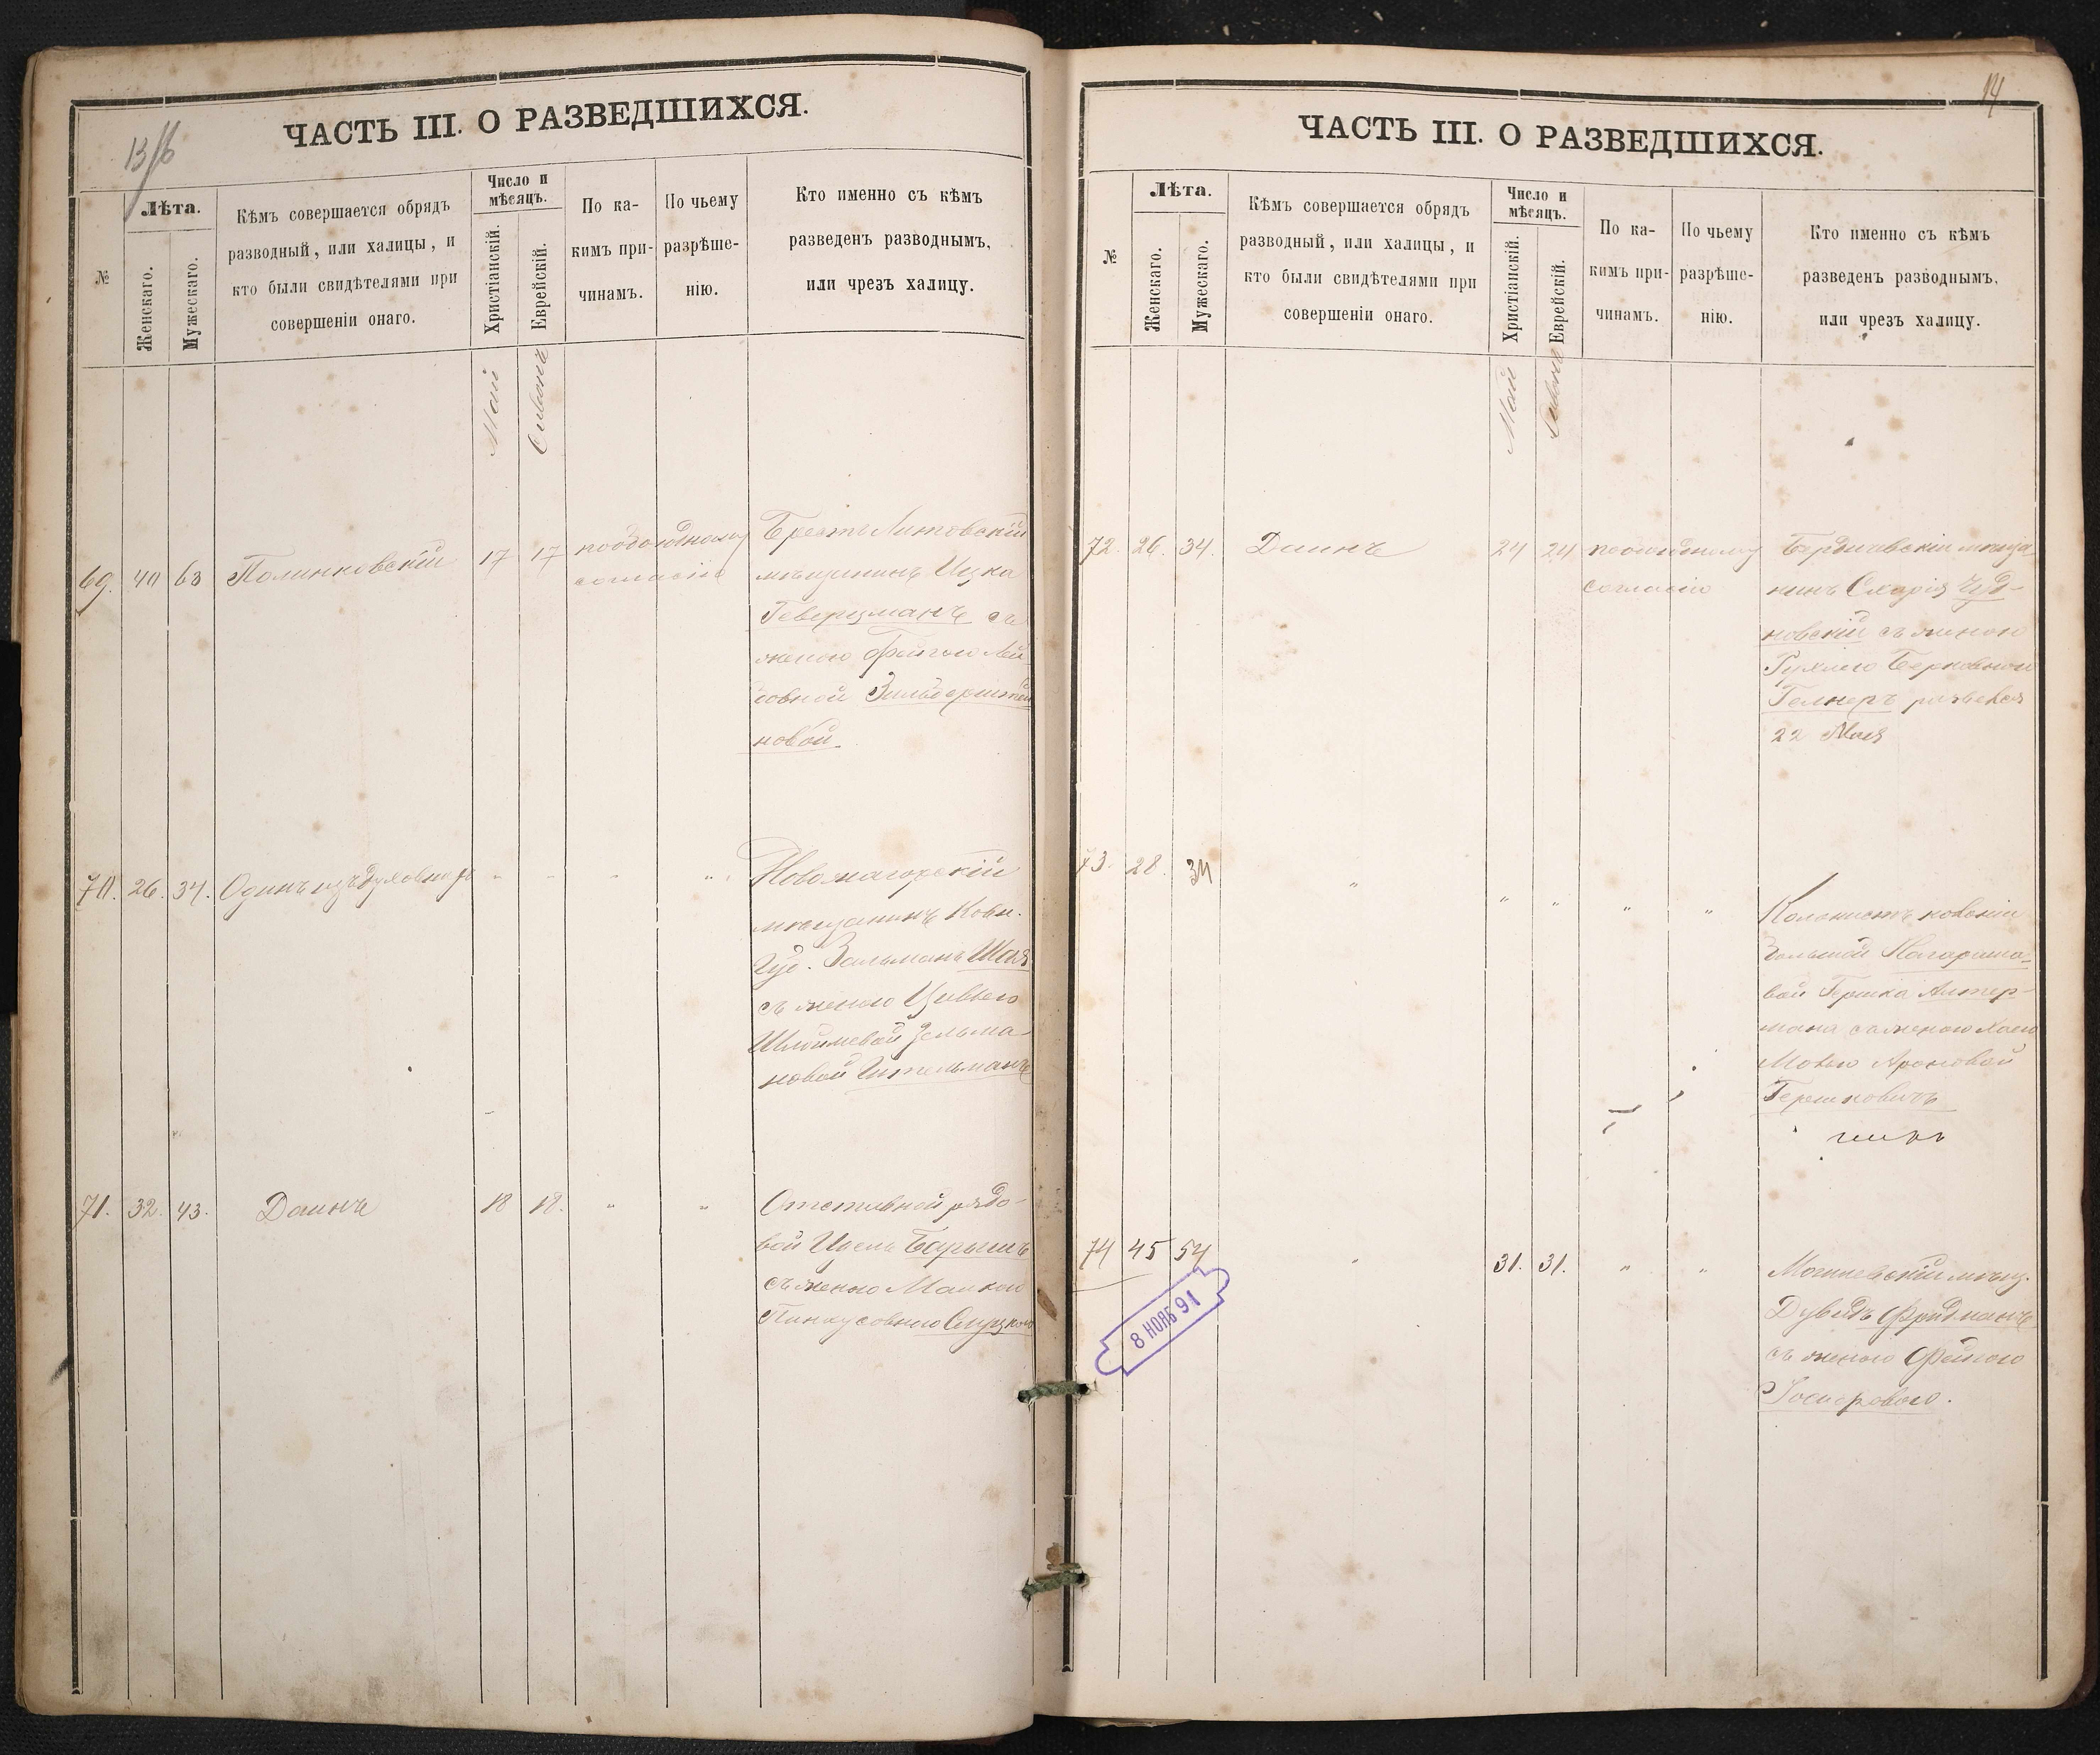 13/6
ЧАСТЬ III. О РАЗВЕДШИХСЯ.
№
Лѣта.
Женскаго.
Мужескаго.
Кѣмъ совершается обрядъ
разводный, или халицы, и
кто были свидѣтелями при
совершеніи онаго.
Число и
мѣсяцъ.
Христіанскій.
Еврейскій.
По ка-
кимъ при-
чинамъ.
По чьему
разрѣше-
нію.
Кто именно съ кѣмъ
разведенъ разводнымъ,
или чрезъ халицу.
Май
Сивонъ
69. 40 63 Полинковскій 17 17
согласію
Брестъ Литовскій
мѣщанинъ Ицка
Геверцманъ съ
женою Фейгою Лей-
бовной Зильберштей
новой.
70. 26. 34. Одинъ изъ духовныхъ
мѣщанинъ Ковн.
Губ. Зальманъ Шая
съ женою Цивьею
Шліомевой Зельма-
новой Гительманъ
71. 32. 43. Даинъ 18 18. " "
Отставной рядо-
вой Іосель Барышъ
съ женою Малкою
Пинкусовною Слуцкою
14
ЧАСТЬ III. О РАЗВЕДШИХСЯ.
№
Лѣта.
Женскаго.
Мужескаго.
Кѣмъ совершается обрядъ
разводный, или халицы, и
кто были свидѣтелями при
совершеніи онаго.
Число и
мѣсяцъ.
Христіанскій.
Еврейскій.
По ка-
кимъ при-
чинамъ.
По чьему
разрѣше-
нію.
Кто именно съ кѣмъ
разведенъ разводнымъ,
или чрезъ халицу.
Май
Сивонъ
72. 26. 34. Даинъ 24 24 пообоюдному
согласію
Бердичевскій мѣща
нинъ Схарія Чуд-
новскій съ женою
Рухлею Берковною
Гелнеръ развелся
22 Мая
73. 28. 34 " " " " "
Колонистъ
Гершка Алтер-
мана съ женою Хаею
Мотею Ароновой
Гершковичъ
74 45 54 " 31. 31. " "
Могилевскій мѣщ.
Дувидъ Фридманъ
съ женою Фейгою
8 НОЯБ 91